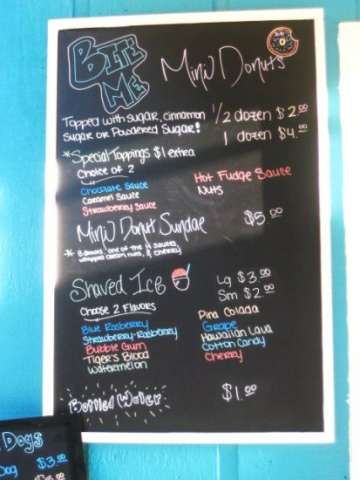 BITE ME
Mini Donuts
Topped with sugar, cinnamon
sugar or Powdered Sugar!
1/2 dozen $2.00
1 dozen $4.00
*Special Toppings $1 extra
Choice of 2
Chocolate Sauce
Caramel Sauce
Strawberry Sauce
Hot Fudge Sauce
Nuts
Mini Donut Sundae $5.00
Shaved Ice
Lg $3.00
Sm $2.00
Choose 2 Flavors
Blue Rasberry
Strawberry-Rasberry
Bubble Gum
Tiger's Blood
Watermelon
Pina Colada
Grape
Hawaiian Lava
Cotton Candy
Cherry
Bottled Water $1.00
Dogs
Dog $3.00